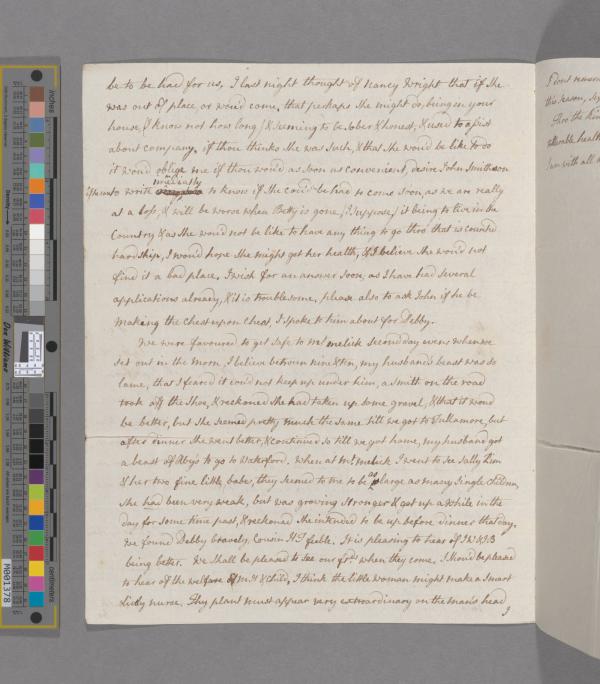 be to be had for us, I last night thought of Nancy Wright that if she
was out of place, or wou'd come, that perhaps she might do, being in your
house, (I know not how long) & seeming to be sober & honest, & used to assist
about company. if thou thinks she was such, & that she wou'd be like to do
it wou'd oblige me if thou would as soon as convenient, desire John Smithson
imediately
to write to know if she could be had to come soon, as we are really
at a loss, & will be worse when Betty is gone, (I suppose) it being to live in the
Country & as she would not be like to have any thing to go thro that is counted
hardship, I wou'd hope she might get her health, & I believe she would not
find it a bad place, I wish for an answer soon, as I have had several
applications already, & it is troublesome, please also to ask John if he be
making the Chest upon Chest, I spoke to him about for Debby.
We were favoured to get safe to Mt. melick second day eveng when we
set out in the morn, I believe between nine & ten, my husband's beast was so
lame, that I feared it could not keep up under him, a smith on the road
took off the Shoe, & reckoned she had taken up some gravel, & that it wou'd
be better, but she seemed pretty much the same till we got to Tullamore, but
after dinner she went better, & continued so till we got home, my husband got
a beast of Aby's to go to Waterford. When at Mt. melick I went to see Sally
& her two fine little babes, they seemed to me to be as large as many single children,
she had been very weak, but was growing stronger & got up a while in the
day for some time past, & reckoned she intended to be up before dinner that day.
We found Debby bravely, Cousin feeble. It is pleasing to hear of
being better. We shall be pleased to see our frds when they come. I should be pleased
to hear of the welfare of & Child, I think the little woman might make a smart
little nurse. Thy plant must appear very extraordinary on the man's head
I
this season,
Thro the
health
I am with all
inches
centimetres
M001378